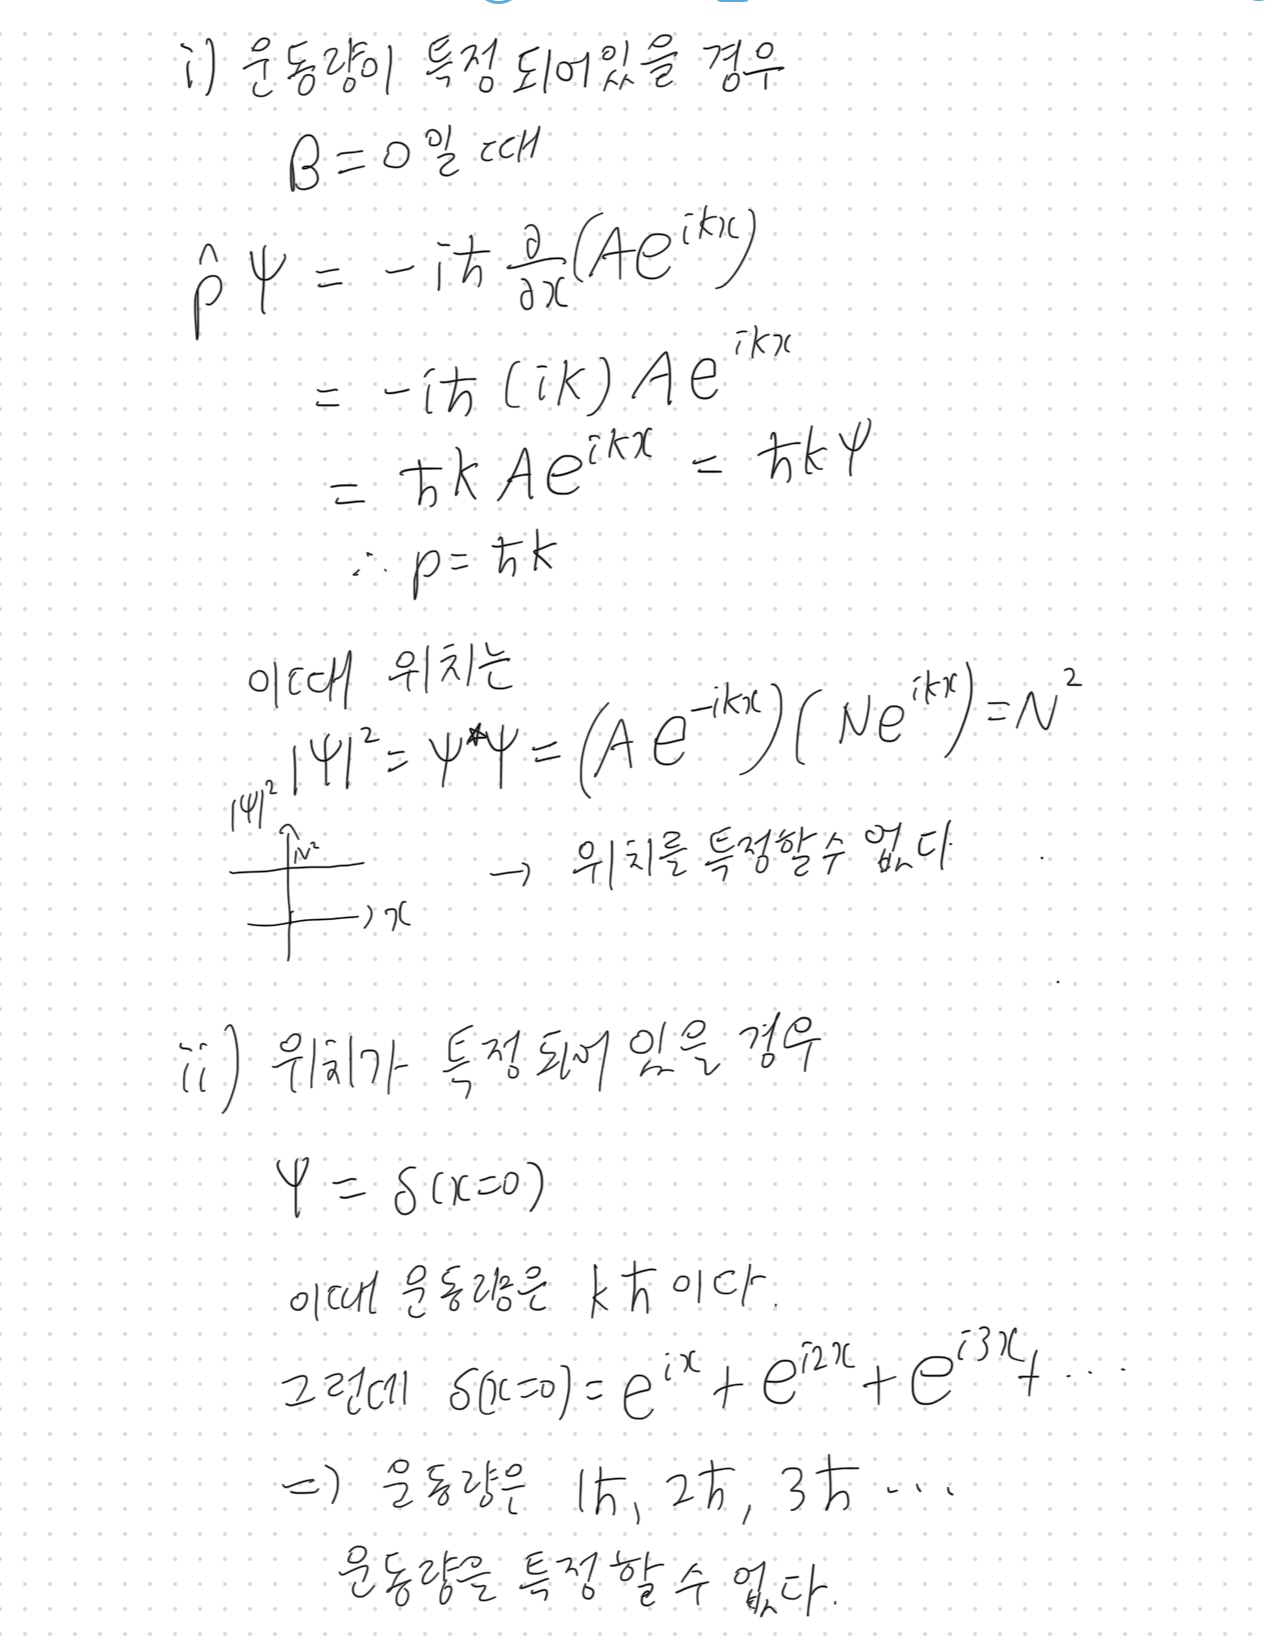 i) 운동량이 특정 되어있을 경우
B = 0 일 때
p̂ψ = -iħ ∂/∂x (Ae^{ikx})
= -iħ (ik) Ae^{ikx}
= ħk Ae^{ikx} = ħkψ
∴ p = ħk
이때 위치는
|ψ|² = ψ*ψ = (Ae^{-ikx})(Ne^{ikx}) = N²
|ψ|²
N²
→ 위치를 특정할 수 없다
x
ii) 위치가 특정 되어 있을 경우
ψ = δ(x=0)
이때 운동량은 kħ이다.
그런데 δ(x=0) = e^{ix} + e^{i2x} + e^{i3x} + ...
=) 운동량은 1ħ, 2ħ, 3ħ ...
운동량을 특정할 수 없다.